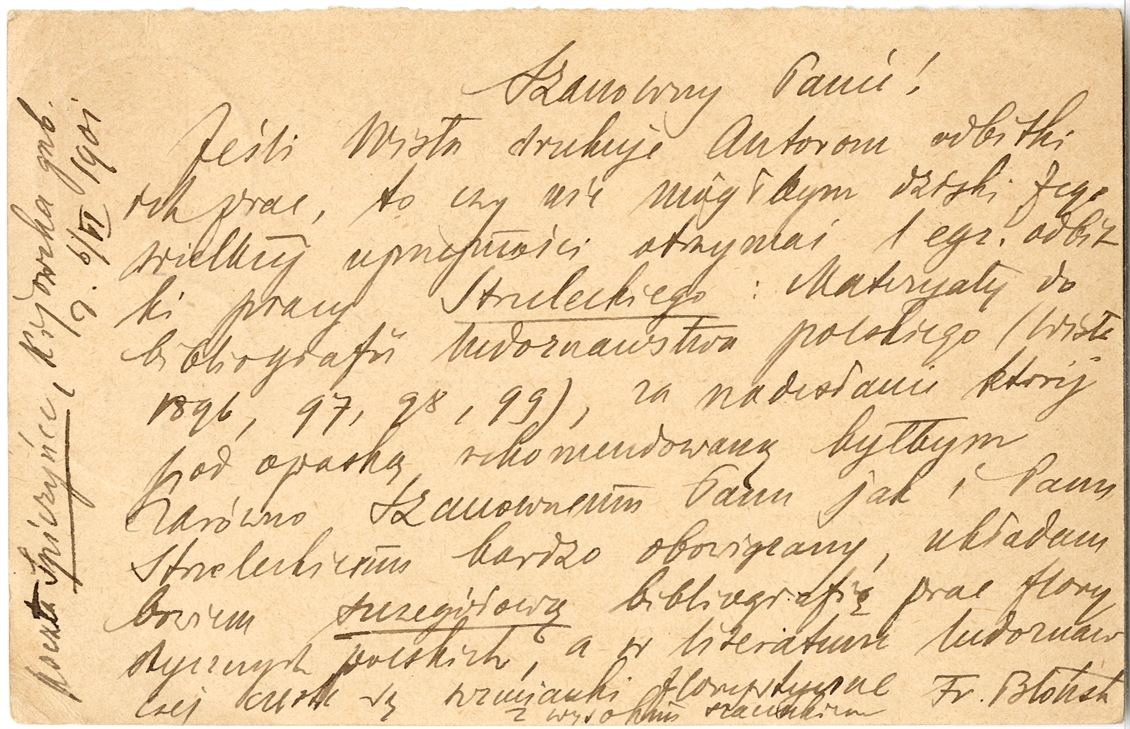 Szanowny Panie!
Jeśli Wisła drukuje Autorom odbitki
ich prac, to czy nie mógłbym dzięki Jego
wielkiej uprzejmości otrzymać 1 egz. odbit
ki pracy Strzeleckiego: Materyały do
bibliografii ludoznawstwa polskiego (Wisła
1896, 97, 98, 99), za nadesłanie której
pod opaską rekomendowaną byłbym
zarówno Szanownemu Panu jak i Panu
Strzeleckiemu bardzo obowiązany, układam
bowiem szczegółową bibliografię prac flory
stycznych polskich, a w literaturze ludoznaw
czej są wzmianki florystyczne
z wysokim szacunkiem Fr. Błońsk
poczta Spiczyńce, Kijowska gub.
d. 6/VI 1901